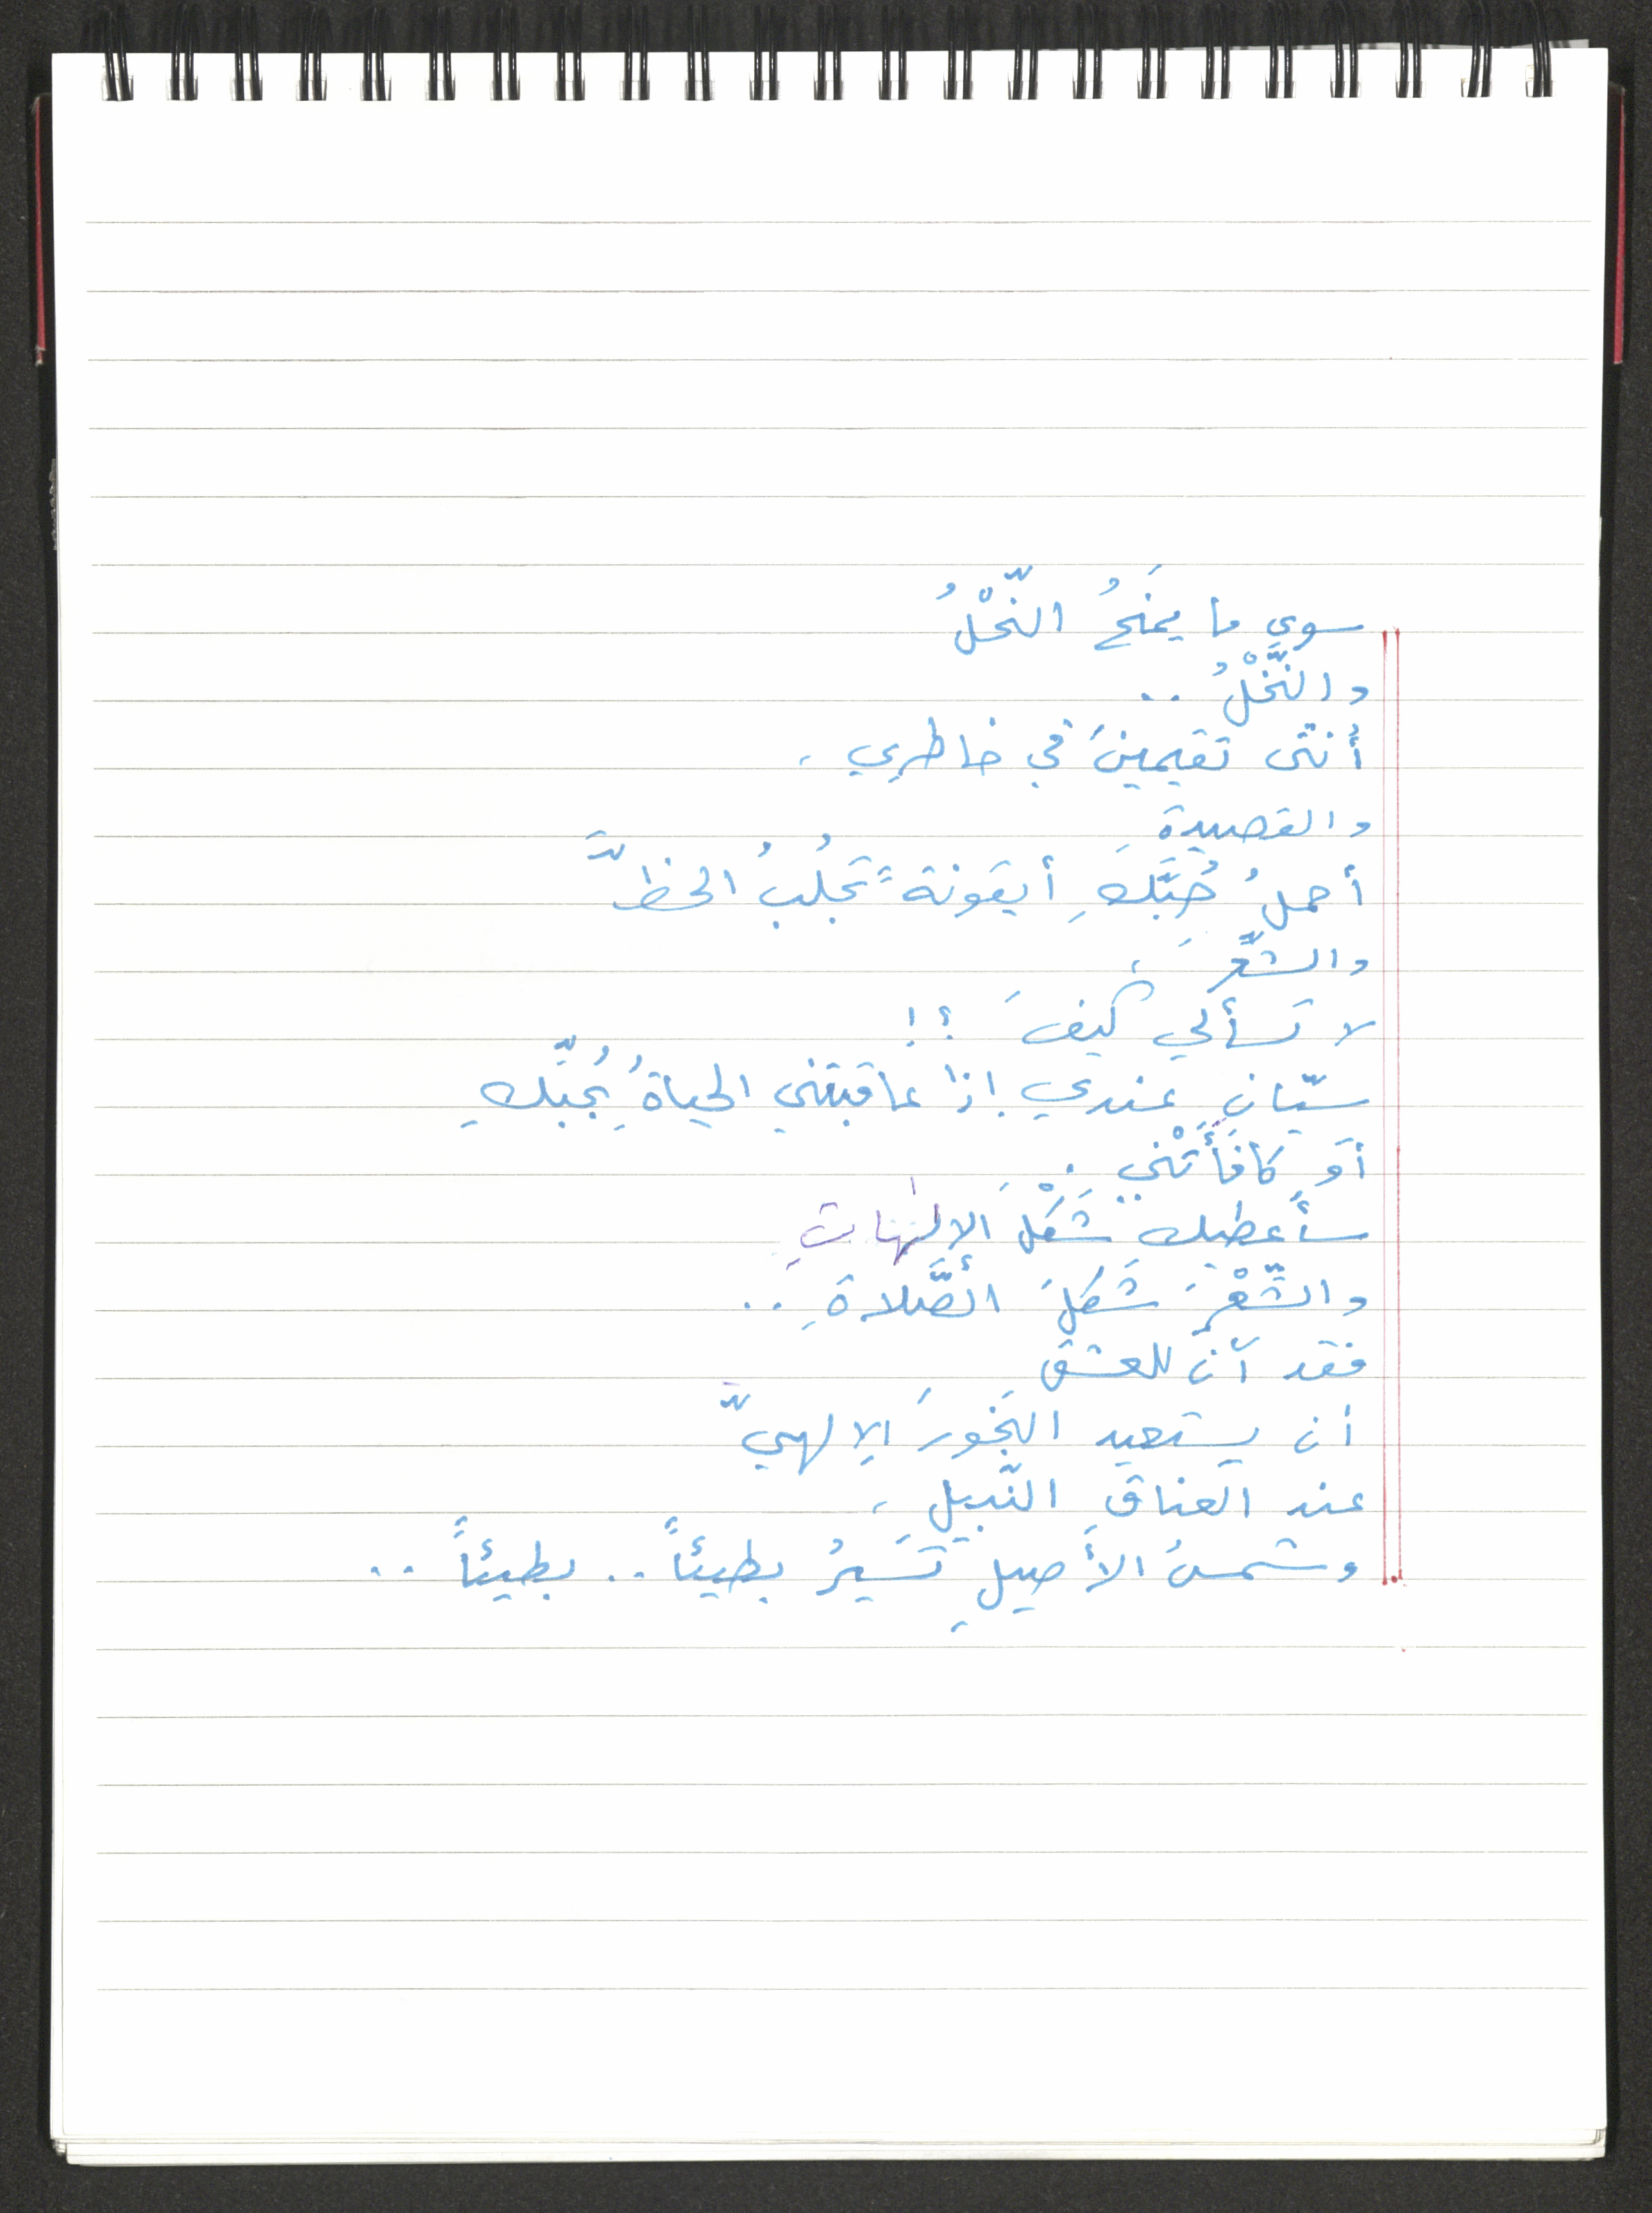 سوى ما يمنَحُ النّخْلُ
والنَّخْلُ ..
أُنثى تقيمينَ في خاطري ،
والقصيدةَ
أحملُ حُبَّكِ أيقونةً تجلُبُ الحظَّ
والشّعرَ ،
لا تسألي كيفَ ؟!
سيّانِ عندي إذا عاقبتني الحياةُ بحُبِّكِ
أو كافَأَتْني .
سأعطيك شَكْلَ الإلٰهاتِ
والشّعْرَ شَكلَ الصَّلاةِ ..
فقد آنَ للعشقِ
أن يستعيد البَخورَ الإلهيَّ
عند العناقِ النّبيلِ ،
وشمسُ الأَصيلِ تَسيرُ بطيئاً .. بطيئاً ..